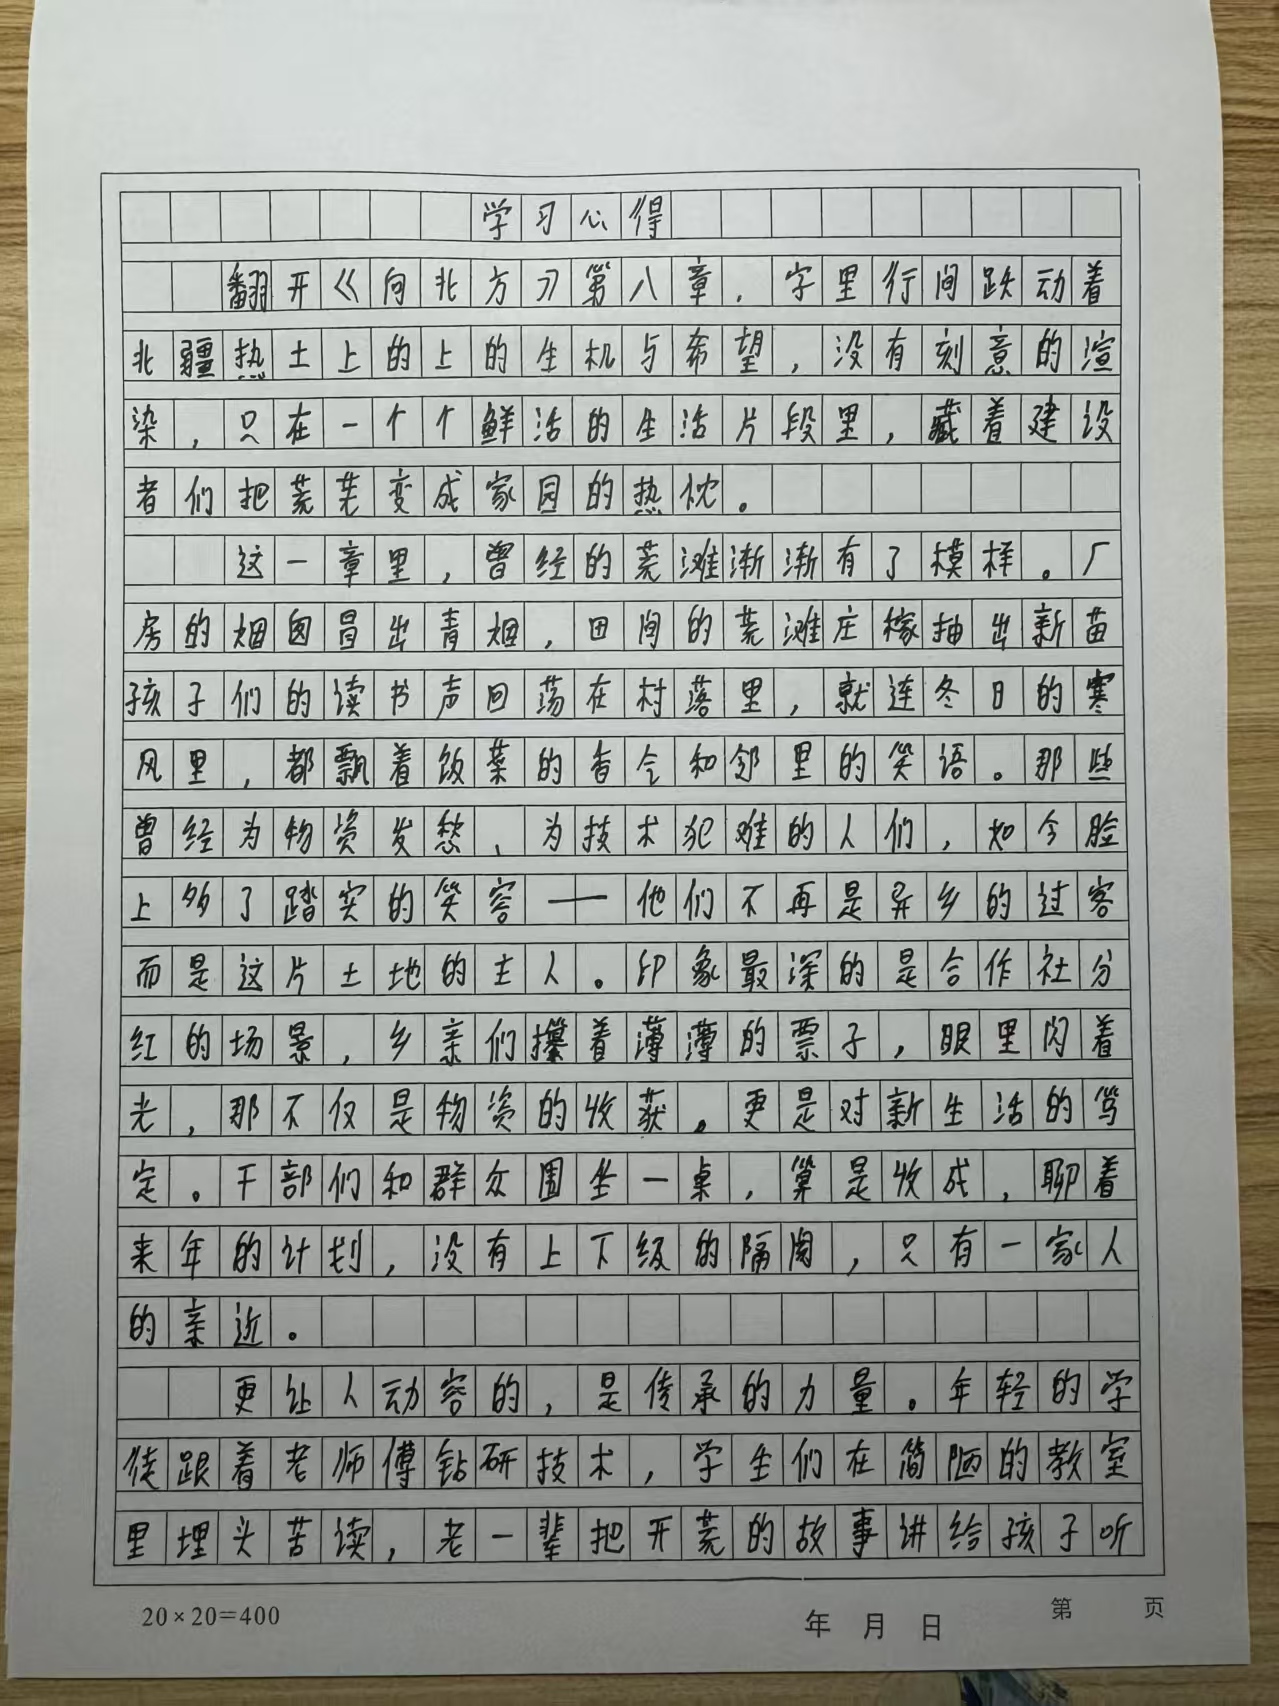 学习心得
翻开《向北方》第八章，字里行间跃动着
北疆热土上的上的生机与希望，没有刻意的渲
染，只在一个个鲜活的生活片段里，藏着建设
者们把荒芜变成家园的热忱。
这一章里，曾经的荒滩渐渐有了模样。厂
房的烟囱冒出青烟，田间的荒滩庄稼抽出新苗
孩子们的读书声回荡在村落里，就连冬日的寒
风里，都飘着饭菜的香气和邻里的笑语。那些
曾经为物资发愁、为技术犯难的人们，如今脸
上多了踏实的笑容——他们不再是异乡的过客
而是这片土地的主人。印象最深的是合作社分
红的场景，乡亲们攥着薄薄的票子，眼里闪着
光，那不仅是物资的收获。更是对新生活的笃
定。干部们和群众围坐一桌，算是收成，聊着
来年的计划，没有上下级的隔阂，只有一家人
的亲近。
更让人动容的，是传承的力量。年轻的学
徒跟着老师傅钻研技术，学生们在简陋的教室
里埋头苦读，老一辈把开荒的故事讲给孩子听
20×20=400
年 月 日
第 页